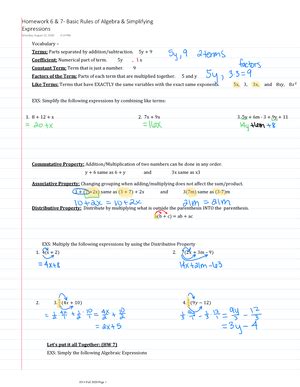 Homework 6 & 7- Basic Rules of Algebra & Simplifying
Expressions
Vocabulary –
Terms: Parts separated by addition/subtraction. 5y + 9
5y, 9 2 terms
Coefficient: Numerical part of term. 5y , 1x
Constant Term: Term that is just a number. 9
factors
Factors of the Term: Parts of each term that are multiplied together. 5 and y
5y, 3·3=9
Like Terms: Terms that have EXACTLY the same variables with the exact same exponents.
EXS: Simplify the following expressions by combining like terms:
1. 8 + 12 + x
2. 7x + 9x
3. 5y + 6m - 3 + 9y + 11
= 20 + x
= 16x
14y + 6m + 8
Commutative Property: Addition/Multiplication of two numbers can be done in any order.
y + 6 same as 6 + y and 3x same as x3
Associative Property: Changing grouping when adding/multiplying does not affect the sum/product.
3 + (7 + 2x) same as (3 + 7) + 2x and 3(7m) same as (3·7)m
10 + 2x = 10 + 2x 21m = 21m
Distributive Property: Distribute by multiplying what is outside the parenthesis INTO the parenthesis.
a(b + c) = ab + ac
EXS: Multiply the following expressions by using the Distributive Property
1. 4(x + 2)
= 4x + 8
4. (9y – 12)
= 2x + 5
= 3y - 4
Let's put it all Together: (HW 7)
EXS: Simplify the following Algebraic Expressions